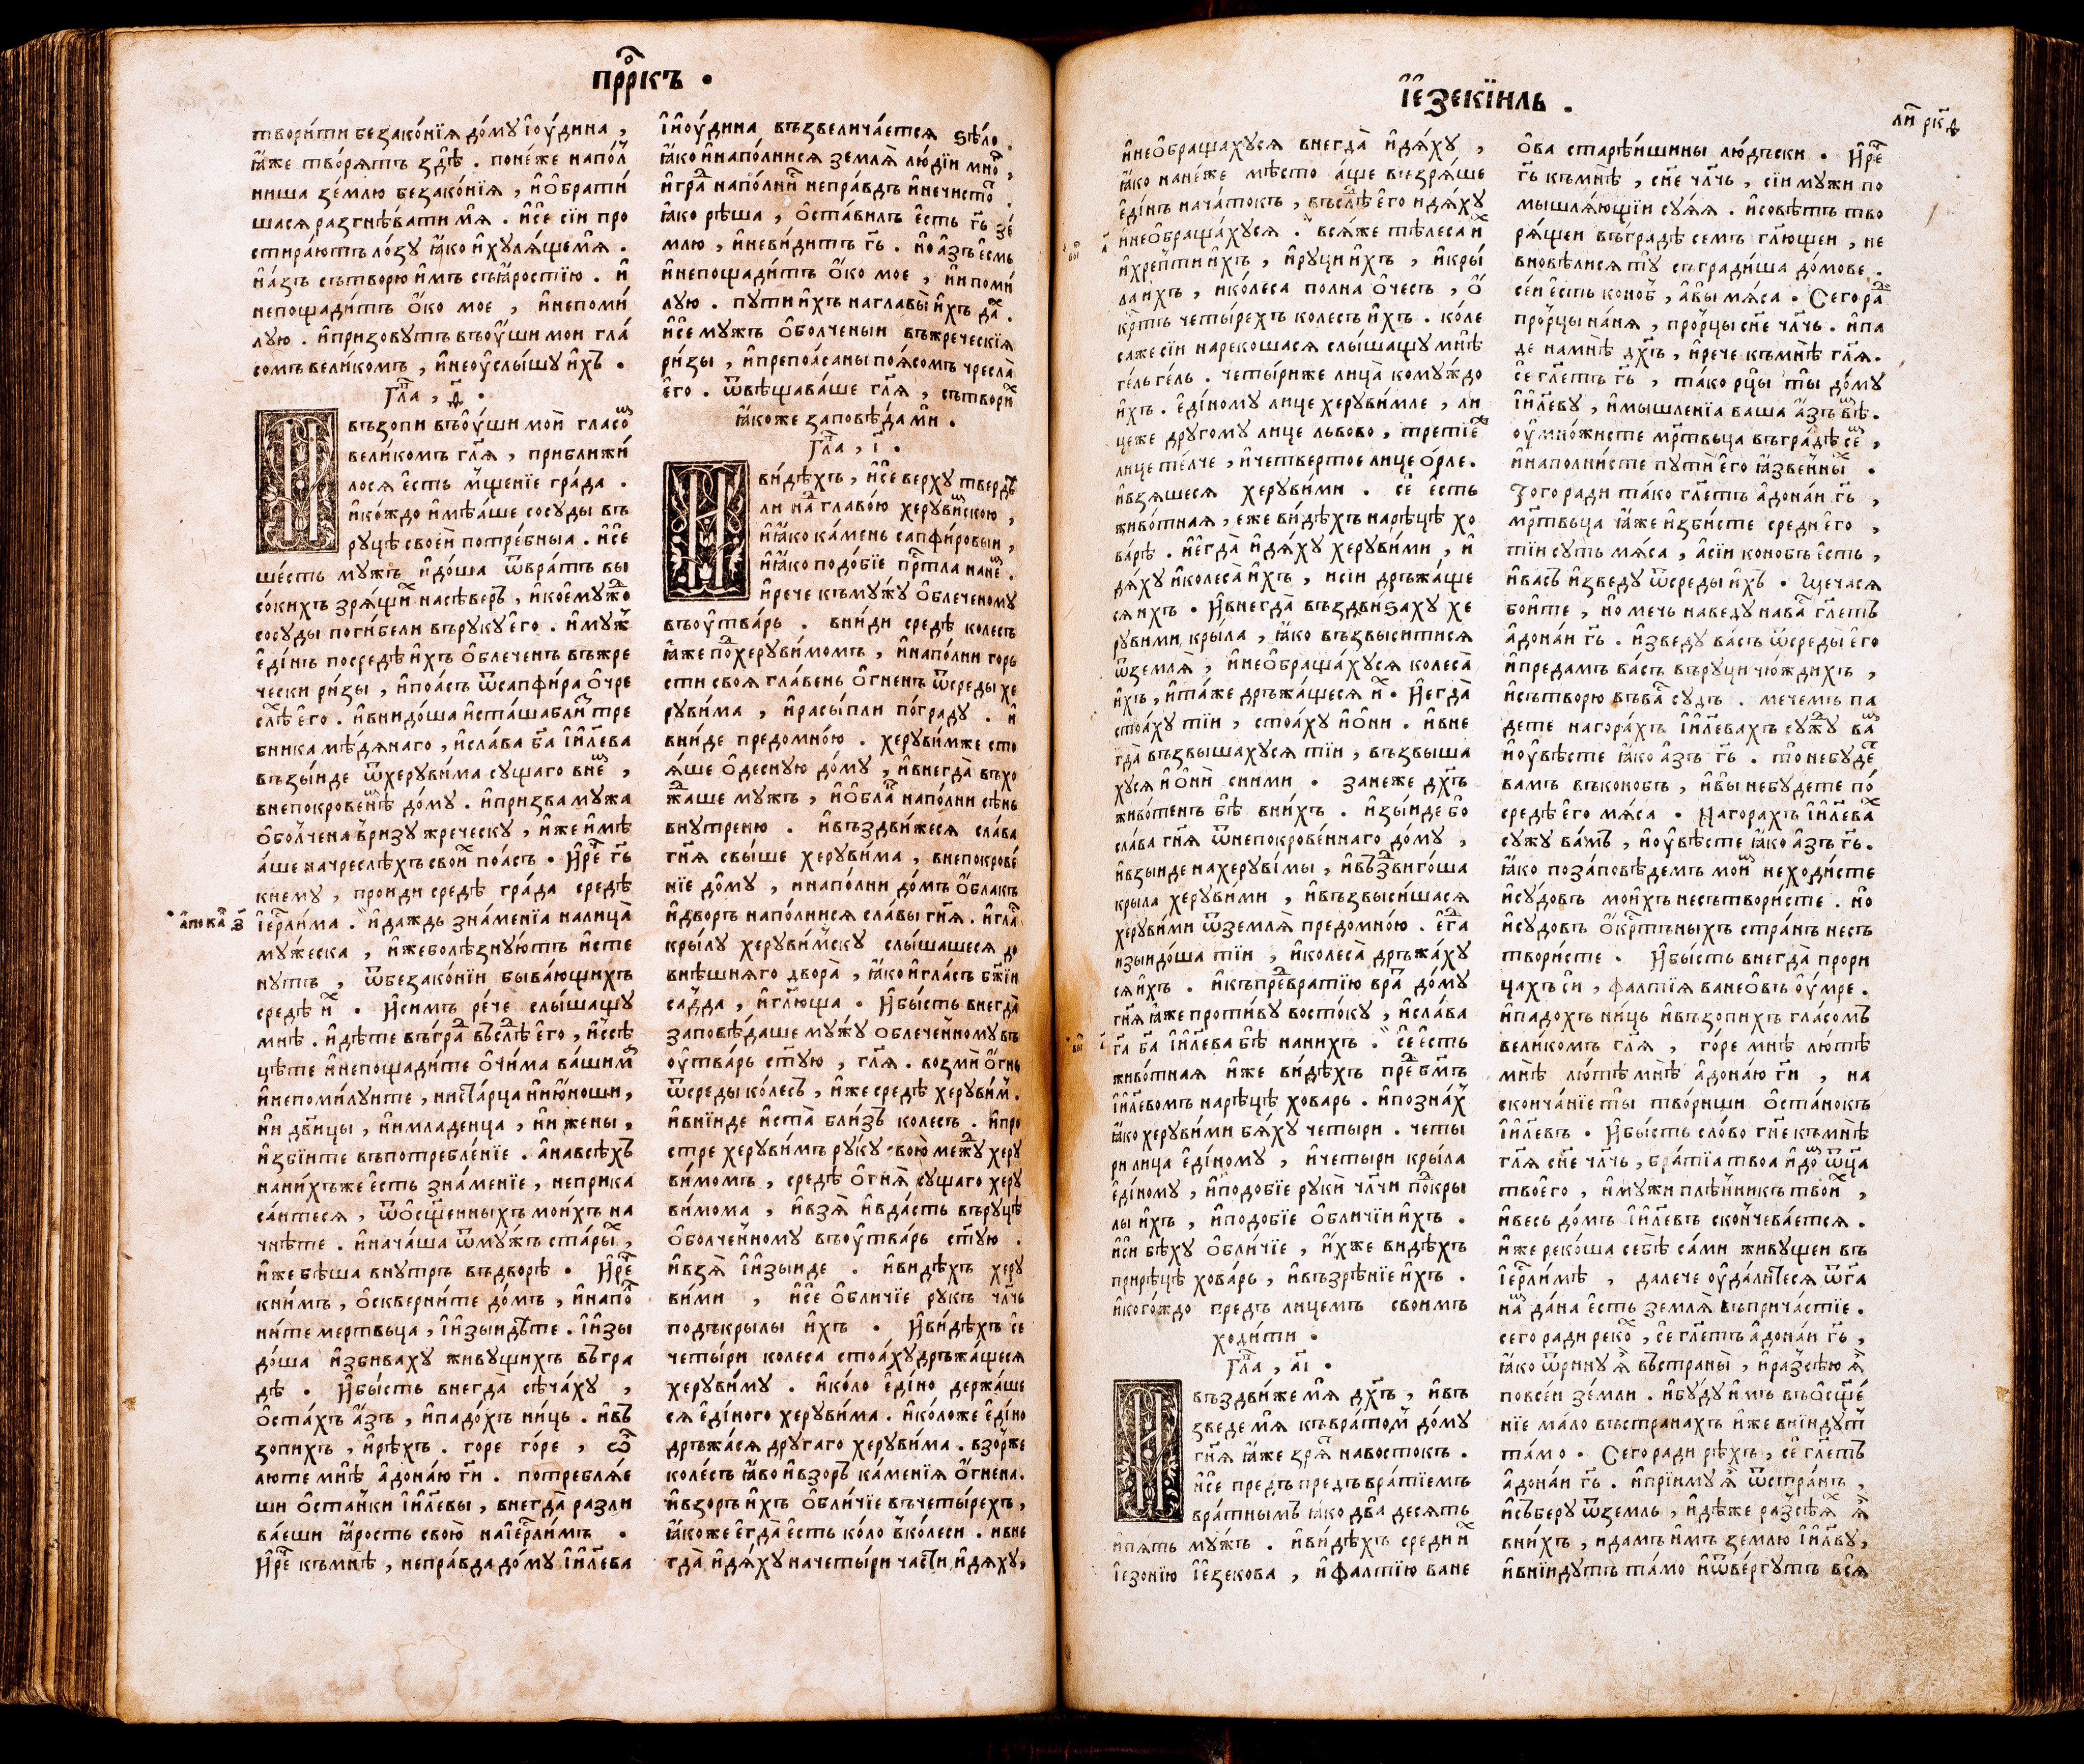 прⷪ҇ркъ .
твори́ти безако́нїѧ до́мꙋ їꙋ́дина ,
ꙗ҆́же творѧтъ зд̾ѣ . поне́же напо́л̾
ниша зе́млю безако́нїѧ , и҆ѡ҆брати́
шасѧ разгнѣ́вати мѧ̀ . и҆сѐ сїи про
стира́ютъ ло́зꙋ ꙗ҆́ко и҆хꙋлѧ́щемѧ .
и҆а́зъ сътворю и҆́мъ съꙗ҆́ростїю . и҆
непощади́тъ ѻ҆́ко мое , и҆непоми́
лꙋю . и҆призовꙋтъ въꙋ҆́ши мои гла́
сомъ вели́комъ , и҆неꙋслы́шꙋ и҆́хъ .
гла҃ , ѳ҃ .
И҆възопи въꙋ҆́ши мои̑ гласо́ⷨ
вели́комъ гл҃ѧ , приближи́
лосѧ є҆́сть мщ҆е́нїе гра́да .
и҆ко́ждо и҆мѣ́ѧше сосꙋ́ды въ
рꙋцѣ̀ свое́й потре́бныа . и҆сѐ
ше́сть мꙋжъ и҆до́ша ѿвра́тъ вы
со́кихъ зрѧ́щиⷯ насѣ́веръ , и҆кое́мꙋжⷣо
сосꙋ́ды поги́бели върꙋкꙋ̀ є҆го̀ . и҆мꙋ́ж̾
є҆ди́нъ посредѣ̀ и҆́хъ ѡ҆блече́нъ въжре
чески ри́зы , и҆поа́съ ѿсапфи́ра ѻ҆чре
слѣⷯ є҆го̀ . и҆внидо́ша и҆ста́шабли́ⷥ тре
бника мѣ́дѧнаго , и҆сла́ва бг҃а і҆и҃лева
възы́иде ѿхерꙋви́ма сꙋщаго вне́ⷨ ,
внепокрове́ннѣⷨ до́мꙋ . и҆призва мꙋ́жа
ѻ҆бо́лчена в̾ризꙋ жре́ческꙋ , и҆́же и҆мѣ
а́ше начреслѣ́хъ свои̑ⷯ поа́съ . И҆реⷱ҇ гь҃
кнемꙋ , проиди средѣ̀ гра́да средѣ̀
і҆ерⷭ҇ли́ма . и҆да́ждь зна́менїа налица̀
мꙋ́жеска , и҆́жеболѣ́знꙋютъ и҆сте
нꙋтъ , ѿбезако́нїи быва́ющихъ
средѣ̀ и҆ⷯ . И҆си́мъ ре́че слы́шащꙋ
мнѣ̀ . и҆дѣ́те въгра́ⷣ въслѣⷣ є҆го̀ , и҆ссѣ
цѣ́те и҆непощади́те ѻ҆чи́ма ва́шимⷨ
и҆непоми́лꙋите , нистⷭа́рца ниюноши ,
ни дв҃и́цы , нимладе́нца , ни жены̀ ,
и҆збі́ите въпотребле́нїе . а҆навсѣ́хъ
наниⷯхъже є҆́сть зна́менїе , неприка
са́итесѧ , ѿѡ҆сще҃нныхъ мои́хъ на
чнѣ́те . и҆нача́ша ѿмꙋ́жъ ста́рыⷯ ,
и҆́же бѣ́ша внꙋтрь въдворѣ̀ . И҆реⷱ҇
кни́мъ , ѻ҆скверни́те до́мъ , и҆напоⷧ
ни́те мертвьца , і҆и҆зыидѣ́те . і҆и҆зы
до́ша и҆збива́хꙋ живꙋщихъ въгра
дѣ . И҆бы́сть внегда̀ сѣча́хꙋ ,
ѻ҆ста́хъ а҆́зъ , и҆падо́хъ ни́ць . и҆въ
зопи́хъ , и҆рѣ́хъ . горе го́ре , ѽ
лю́те мнѣ̀ а҆дона́ю гд҃и . потреблѧ́е
ши ѻ҆ста́нки і҆и҃левы , внегда̀ разли
ва́еши ꙗ҆́рость свою̀ наі҆ерⷭ҇ли́мъ .
И҆реⷱ҇ къмнѣ̀ , непра́вда до́мꙋ і҆и҃лева
і҆и҆ꙋ́дина възвелича́етсѧ ѕѣ́ло .
ꙗ҆́ко и҆напо́лнисѧ землѧ̀ лю́дїи мно́ⷢ ,
и҆гра́ⷣ напо́лни́ⷭ непра́вдъ и҆нечисто́ⷮ .
ꙗ҆́ко рѣ́ша , ѻ҆ста́вилъ є҆́сть гь҃ зе́
млю , и҆неви́дитъ гь҃ . и҆но а҆́зъ є҆́смь
и҆непощади́тъ ѻ҆́ко мое , нипоми́
лꙋю . пꙋти и҆́хъ наглавы̀ и҆́хъ даⷯ .
и҆сѐ мꙋжъ ѻ҆болче́ныи въжре́ческїѧ
ри́зы , и҆препоа́саны по́ѧсомъ чресла̀
є҆го̀ . ѿвѣщава́ше гл҃ѧ , сътвори́ⷯ
ꙗ҆́коже заповѣ́да мѝ .
гла҃ , і҃ .
И҆ви́дѣхъ , и҆сѐ ве́рхꙋ твердѣ
ли на́ⷣ главо́ю херꙋви́мⷨскою ,
и҆ꙗ҆́ко ка́мень сапфи́ровыи ,
и҆ꙗ҆́ко подо́бїе прⷭ҇тла нане́ⷨ .
и҆рече къмꙋжꙋ ѻ҆блече́номꙋ
въꙋ҆тва́рь . вни́ди средѣ̀ коле́съ
ꙗ҆́же поⷣхерꙋви́момъ , и҆напо́лни горь
сти своѧ гла́вень ѻ҆гне́нъ ѿсреды̀ хе
рꙋви́ма , и҆расы́пли по́градꙋ . и҆
вни́де предомно́ю . херꙋви́мже сто
ѧ́ше ѻ҆деснꙋю до́мꙋ , и҆внегда̀ въхо
жⷣаше мꙋжъ , и҆ѻ҆блаⷦ напо́лни сѣ́нь
внꙋ́треню . и҆въздви́жесѧ сла́ва
гн҃ѧ свы́ше херꙋви́ма , внепокрове́
нїе до́мꙋ , и҆напо́лни до́мъ ѻ҆́блакъ
и҆дворъ напо́лнисѧ сла́вы гн҃ѧ . и҆гла́ⷭ
крылꙋ̀ херꙋви́мскꙋ слы́шашесѧ до
внѣ́шнѧго двора̀ , ꙗ҆́ко и҆гла́съ бж҃їи
садда , и҆гл҃юща . И҆бы́сть внегда̀
заповѣ́даше мꙋжꙋ ѻблече́нномꙋ въ
ꙋ҆тва́рь ст҃ꙋю , гл҃ѧ . возмѝ ѻ҆́гнь
ѿсреды̀ коле́съ , и҆́же средѣ̀ херꙋви́м̾ .
и҆внїиде и҆ста̀ бли́зъ коле́съ . и҆про
стре херꙋви́мъ рꙋ́кꙋ вою̀ межⷣꙋ херꙋ
ви́момъ , средѣ̀ ѻ҆гнѧ̀ сꙋщаго херꙋ
ви́мома , и҆взѧ̀ и҆вда́сть върꙋцѣ̀
ѻ҆болче́нномꙋ въꙋ҆тва́рь ст҃ꙋю .
и҆взѧ̀ і҆и҆зы́иде . и҆ви́дѣхъ херꙋ
ви́ми , и҆сѐ ѻ҆бли́чїе рꙋкъ чл҃чь
подъкрылы и҆́хъ . И҆ви́дѣхъ сѐ
четы́ри коле́са стоа́хꙋдръжа́щесѧ
херꙋви́мꙋ . и҆ко́ло є҆ди́но держа́ше
сѧ є҆ди́ного херꙋви́ма . и҆ко́ложе є҆ди́но
дръжа́сѧ дрꙋга́го херꙋви́ма . взо́рже
коле́съ ꙗ҆́во и҆взоръ ка́менїѧ ѻ҆́гнена .
и҆взоръ и҆́хъ ѻ҆бли́чїе въчеты́рехъ ,
ꙗ҆́коже є҆гда̀ є҆́сть ко́ло в̾ко́леси . ивне
гда̀ и҆дѧ́хꙋ начеты́ри ча́сти , и҆дѧхꙋ ,
а҆пока́ⷧ з҃
і҆е́зекїиль .
ли́ⷭ рк҃д
и҆неѻ҆браща́хꙋсѧ внегда̀ и҆дѧ́хꙋ ,
ꙗ҆́ко нане́же мѣ́сто а́ще възрѧ́ше
є҆ди́нъ нача́токъ , въслѣⷣ є҆го̀ идѧхꙋ
и҆неѻ҆браща́хꙋсѧ . всѧ́же тѣлеса иⷯ
и҆хрепти и҆́хъ , и҆рꙋци и҆́хъ , и҆кры́
ла и҆́хъ , и҆коле́са полна ѻ҆че́съ , ѻ҆́
кр҇тъ четы́рехъ коле́съ и҆́хъ . коле
сажесїи нареко́шасѧ слы́шащꙋ мнѣ̀
ге́ль ге́ль . четы́риже лица̀ комꙋ́ждо
и҆́хъ . є҆ди́номꙋ лице херꙋви́мле , ли
цеже дрꙋго́мꙋ лице льво́во , тре́тїеⷨ
лице те́лче , и҆четве́ртое лице ѻ҆́рле .
и҆взѧшесѧ херꙋви́ми . сѐ є҆́сть
живо́тнаѧ , еже ви́дѣхъ нарѣцѣ̀ хо
ва́рѣ . и҆є҆гда̀ и҆дѧ́хꙋ херꙋви́ми , и҆
дѧ́хꙋ и҆колеса̀ и҆́хъ , исїи дръжа́ще
сѧ и҆́хъ . И҆внегда̀ въздви́ѕахꙋ хе
рꙋви́ми кры́ла , ꙗ҆́ко възвы́ситисѧ
ѿземлѧ̀ , и҆неѻ҆браща́хꙋсѧ колеса̀
и҆́хъ , и҆та́же дръжа́щесѧ и҆ⷯ . И҆є҆гда̀
стоа́хꙋ тїи , стоа́хꙋ и҆ѻ҆ни . и҆вне
гда̀ възвыша́хꙋсѧ тїи , възвыша
хꙋсѧ и҆ѻ҆ни̑ сни́ми . зане́же дх҃ъ
живо́тенъ бѣ̀ вни́хъ . и҆зы́иде бо
сла́ва гн҃ѧ ѿнепокрове́ннаго до́мꙋ ,
и҆взыиде нахерꙋви́мы , и҆въз̾дви́гоша
крыла херꙋви́ми , и҆възвыси́шасѧ
херꙋви́ми ѿземлѧ̀ предомно́ю . є҆гⷣа
изыидо́ша тїи , и҆колеса̀ дръжа́хꙋ
сѧ и҆́хъ . и҆къпреⷣвратїю враⷮ до́мꙋ
гн҃ѧ ꙗ҆́же проти́вꙋ восто́кꙋ , и҆сла́ва
гд҃а бг҃а і҆и҃лева бѣ̀ нани́хъ . сѐ є҆́сть
живо́тнаѧ и҆́же ви́дѣхъ преⷣ бг҃мъ
і҆и҃левомъ нарѣцѣ̀ хова́рь . и҆позна́х̾
ꙗ҆́ко херꙋви́ми бѧ́хꙋ четы́ри . четы
ри лица є҆ди́номꙋ , и҆четы́ри кры́ла
є҆ди́номꙋ , и҆подо́бїе рꙋкѝ чл҃чи поⷣкры
лы и҆́хъ , и҆подо́бїе ѻ҆бли́чїи и҆́хъ .
и҆си бѣхꙋ ѻ҆бли́чїе , и҆́хже ви́дѣхъ
прирѣ́цѣ хова́рь , и҆възрѣ́нїе и҆́хъ .
и҆кого́ждо пре́дъ лице́мъ свои́мъ
ходи́ти .
гла҃ , а҃і .
И҆въздви́же мѧ̀ дх҃ъ , и҆въ
зведе мѧ̀ къвра́том̾ до́мꙋ
гн҃ѧ ꙗ҆́же зрѧ́ⷮ навосто́къ .
и҆сѐ предъ предъвра́тїемъ
вра́тнымъ ꙗ҆́ко два̀ де́сѧть
и҆пѧ́ть мꙋжъ . и҆ви́дѣхъ среди и҆ⷯ
і҆езо́нїю і҆е́зекова , и҆фалтїю ване
ѻ҆ва старѣ́ишины лю́дьски . И҆реⷱ҇
гь҃ къмнѣ̀ , сн҃е чл҃чь , сїи мꙋжи по
мышлѧ́ющїи сꙋ́ѧѧ . и҆совѣ́тъ тво
рѧ́щеи въгра́дѣ семъ гл҃ющеи , не
внове́лисѧ тꙋ̀ съгради́ша до́мове .
се́и є҆́сть коно́ⷠ , а҆вы̀ мѧ́са . Сего раⷣ
проⷪ҇рцы на́нѧ , проⷪ҇рцы сн҃е чл҃чь . и҆па
де намнѣ̀ дх҃ъ , и҆рече къмнѣ̀ гл҃ѧ .
сѐ гл҃етъ гь҃ , та́ко рцы̀ ты̀ до́мꙋ
і҆и҃левꙋ , и҆мышле́нїа ваша а҆́зъ вѣⷨ .
ꙋ҆мно́жисте мр҃твьца въгра́дѣ сеⷨ ,
и҆наполни́сте пꙋти̑ є҆го̀ ꙗ҆́звенныⷯ .
Того ради та́ко гл҃етъ а҆дона́и гь҃ ,
мр҃твьца ꙗ҆́же и҆зби́сте среди є҆го̀ ,
тїи сꙋть мѧ́са , а҆сїи коно́бъ є҆́сть ,
и҆ва́съ и҆зведꙋ̀ ѿсреды̀ и҆́хъ . Щечасѧ
бои́те , и҆о ме́чь наведꙋ̀ наваⷭ гл҃етъ
а҆дона́и гь҃ . и҆зведꙋ̀ ва́съ ѿсреды̀ є҆го̀
и҆преда́мъ ва́съ върꙋци чю́ждихъ ,
и҆сътворю въваⷭ сꙋдъ . мече́мъ па
де́те нагора́хъ і҆и҃левахъ сꙋжⷣꙋ ваⷨ
и҆ꙋ҆вѣ́сте ꙗ҆́ко а҆́зъ гь҃ . то̀ небꙋ́деⷮ
ва́мъ въконобъ , и҆вы̀ небꙋдете по́
средѣ є҆го̀ мѧ́са . Нагора́хъ і҆и҃левⷯа
сꙋжꙋ ва́мъ , и҆ꙋ҆вѣ́сте ꙗ҆́ко а҆́зъ гь҃ .
ꙗ҆́ко поза́повѣдемъ моиⷨ неходи́сте
и҆сꙋдо́въ мои́хъ несътвори́сте . и҆о
и҆сꙋдо́въ ѻ҆кр҇тъныхъ стра́нъ несъ
твори́сте . И҆бы́сть внегда̀ прори
ца́хъ сѝ , фалтїѧ ване́ѡвъ ꙋ҆́мре .
и҆падо́хъ ни́ць и҆възопи́хъ гла́сомъ
вели́комъ гл҃ѧ , го́ре мнѣ̀ лю́тѣ
мнѣ̀ лю́тѣ мнѣ̀ а҆дона́ю гд҃и , на
сконча́нїе ты̀ твори́ши ѻ҆ста́нокъ
і҆и҃левъ . И҆бы́сть сло́во гн҃е къмнѣ̀
гл҃ѧ сн҃е чл҃чь , бра́тїа твоа и҆до́ⷨ ѿц҃а
твоє҆го̀ , и҆мꙋжи плѣ́нникъ твоиⷯ ,
и҆ве́сь до́мъ і҆и҃левъ сконче́вается .
и҆́же реко́ша себѣ̀ са́ми живꙋщеи въ
і҆ерⷭ҇ли́мѣ , дале́че ꙋ҆да́литесѧ ѿгд҃а
наⷨ да́на є҆́сть землѧ̀ въприча́стїе .
сего ради реко́ⷯ , сѐ гл҃етъ а҆дона́и гь҃ ,
ꙗ҆́ко ѿри́нꙋ ѧ҆̀ въстраны̀ , и҆раз̾сѣ́ю ѧ҆̀
повсе́и зе́мли . и҆бꙋ́дꙋ и҆́мъ въѡ҆сще҃
нїе ма́ло въстранахъ и҆́же вни́идꙋт̾
та́мо . Сего ради рѣ́хъ , сѐ гл҃етъ
а҆дона́и гь҃ . и҆прїимꙋ ѧ҆̀ ѿстра́нъ ,
и҆събе́рꙋ ѿземль , и҆дѣ́же раз̾сѣ́ѧⷯ ѧ҆̀
вни́хъ , и҆да́мъ и҆́мъ зе́млю і҆и҃лвꙋ ,
и҆вни́идꙋтъ та́мо и҆ѿве́ргꙋтъ всѧ̀